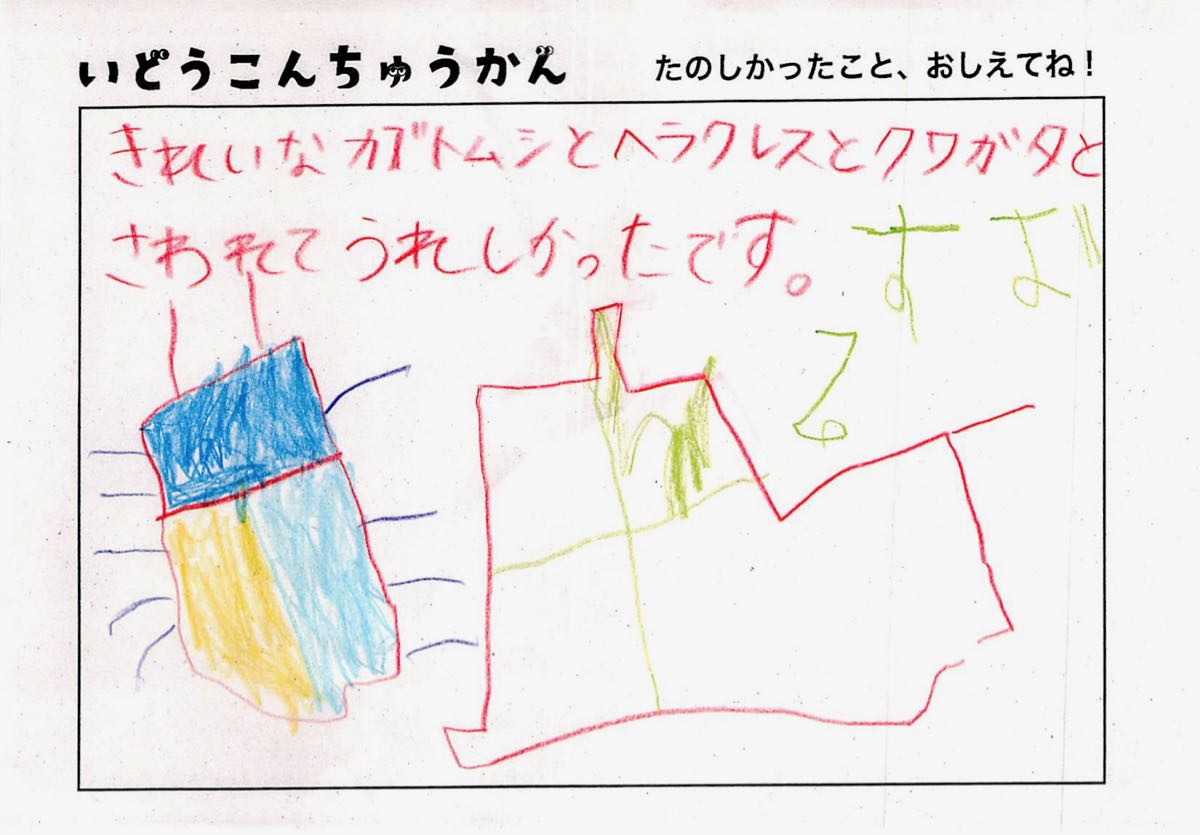 いどうこんちゅうかん
たのしかったこと、おしえてね！
きれいなカブトムシとヘラクレスとクワガタと
さわれてうれしかったです。
すば
る